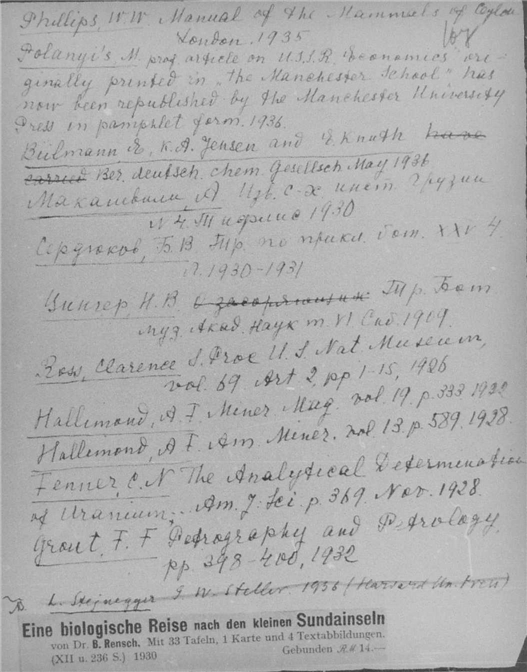 Phillips, W.W. Manual of the Mammals of Ceylon
London. 1935
168
Polanyi's, M. prof. article on U.S.S.R. Economics" ori-
ginally printed in „the Manchester School" has
now been republished by the Manchester University
Press in pamphlet form. 1936.
Biilmann, E., K.A. Jensen and E. Knuth have
carried Ber. deutsch. chem. Gesellsch May 1936
Макашвили, А Изв. с-х инст Грузии
N 4. Тифлис 1930
Сердюков, Б.В Тр. по прикл. бот. XXV 4.
1930-1931
Цингер, Н.В О засоряющих Тр. Бот
муз Акад. Наук т. VI Спб. 1909.
Ross, Clarence S. Proc U.S. Nat Museum,
vol. 69 Art 2, pp 1-15, 1926
Hallimond, A F. Miner Mag. vol. 19, p. 333 1922
Hallimond, A F. Am Miner. vol 13. p. 589. 1928.
Fenner, C.N The Analytical Determination
of Uranium... Am. J. Sci p. 369. Nov. 1928.
Grout, F. F Petrography and Petrology.
pp. 398-400, 1932
L. Stejnegger G. W. Steller. 1936 (Harvard Un. Press)
Eine biologische Reise nach den kleinen Sundainseln
von Dr. B. Rensch. Mit 33 Tafeln, 1 Karte und 4 Textabbildungen.
(XII u. 236 S.) 1930 Gebunden RM 14.—